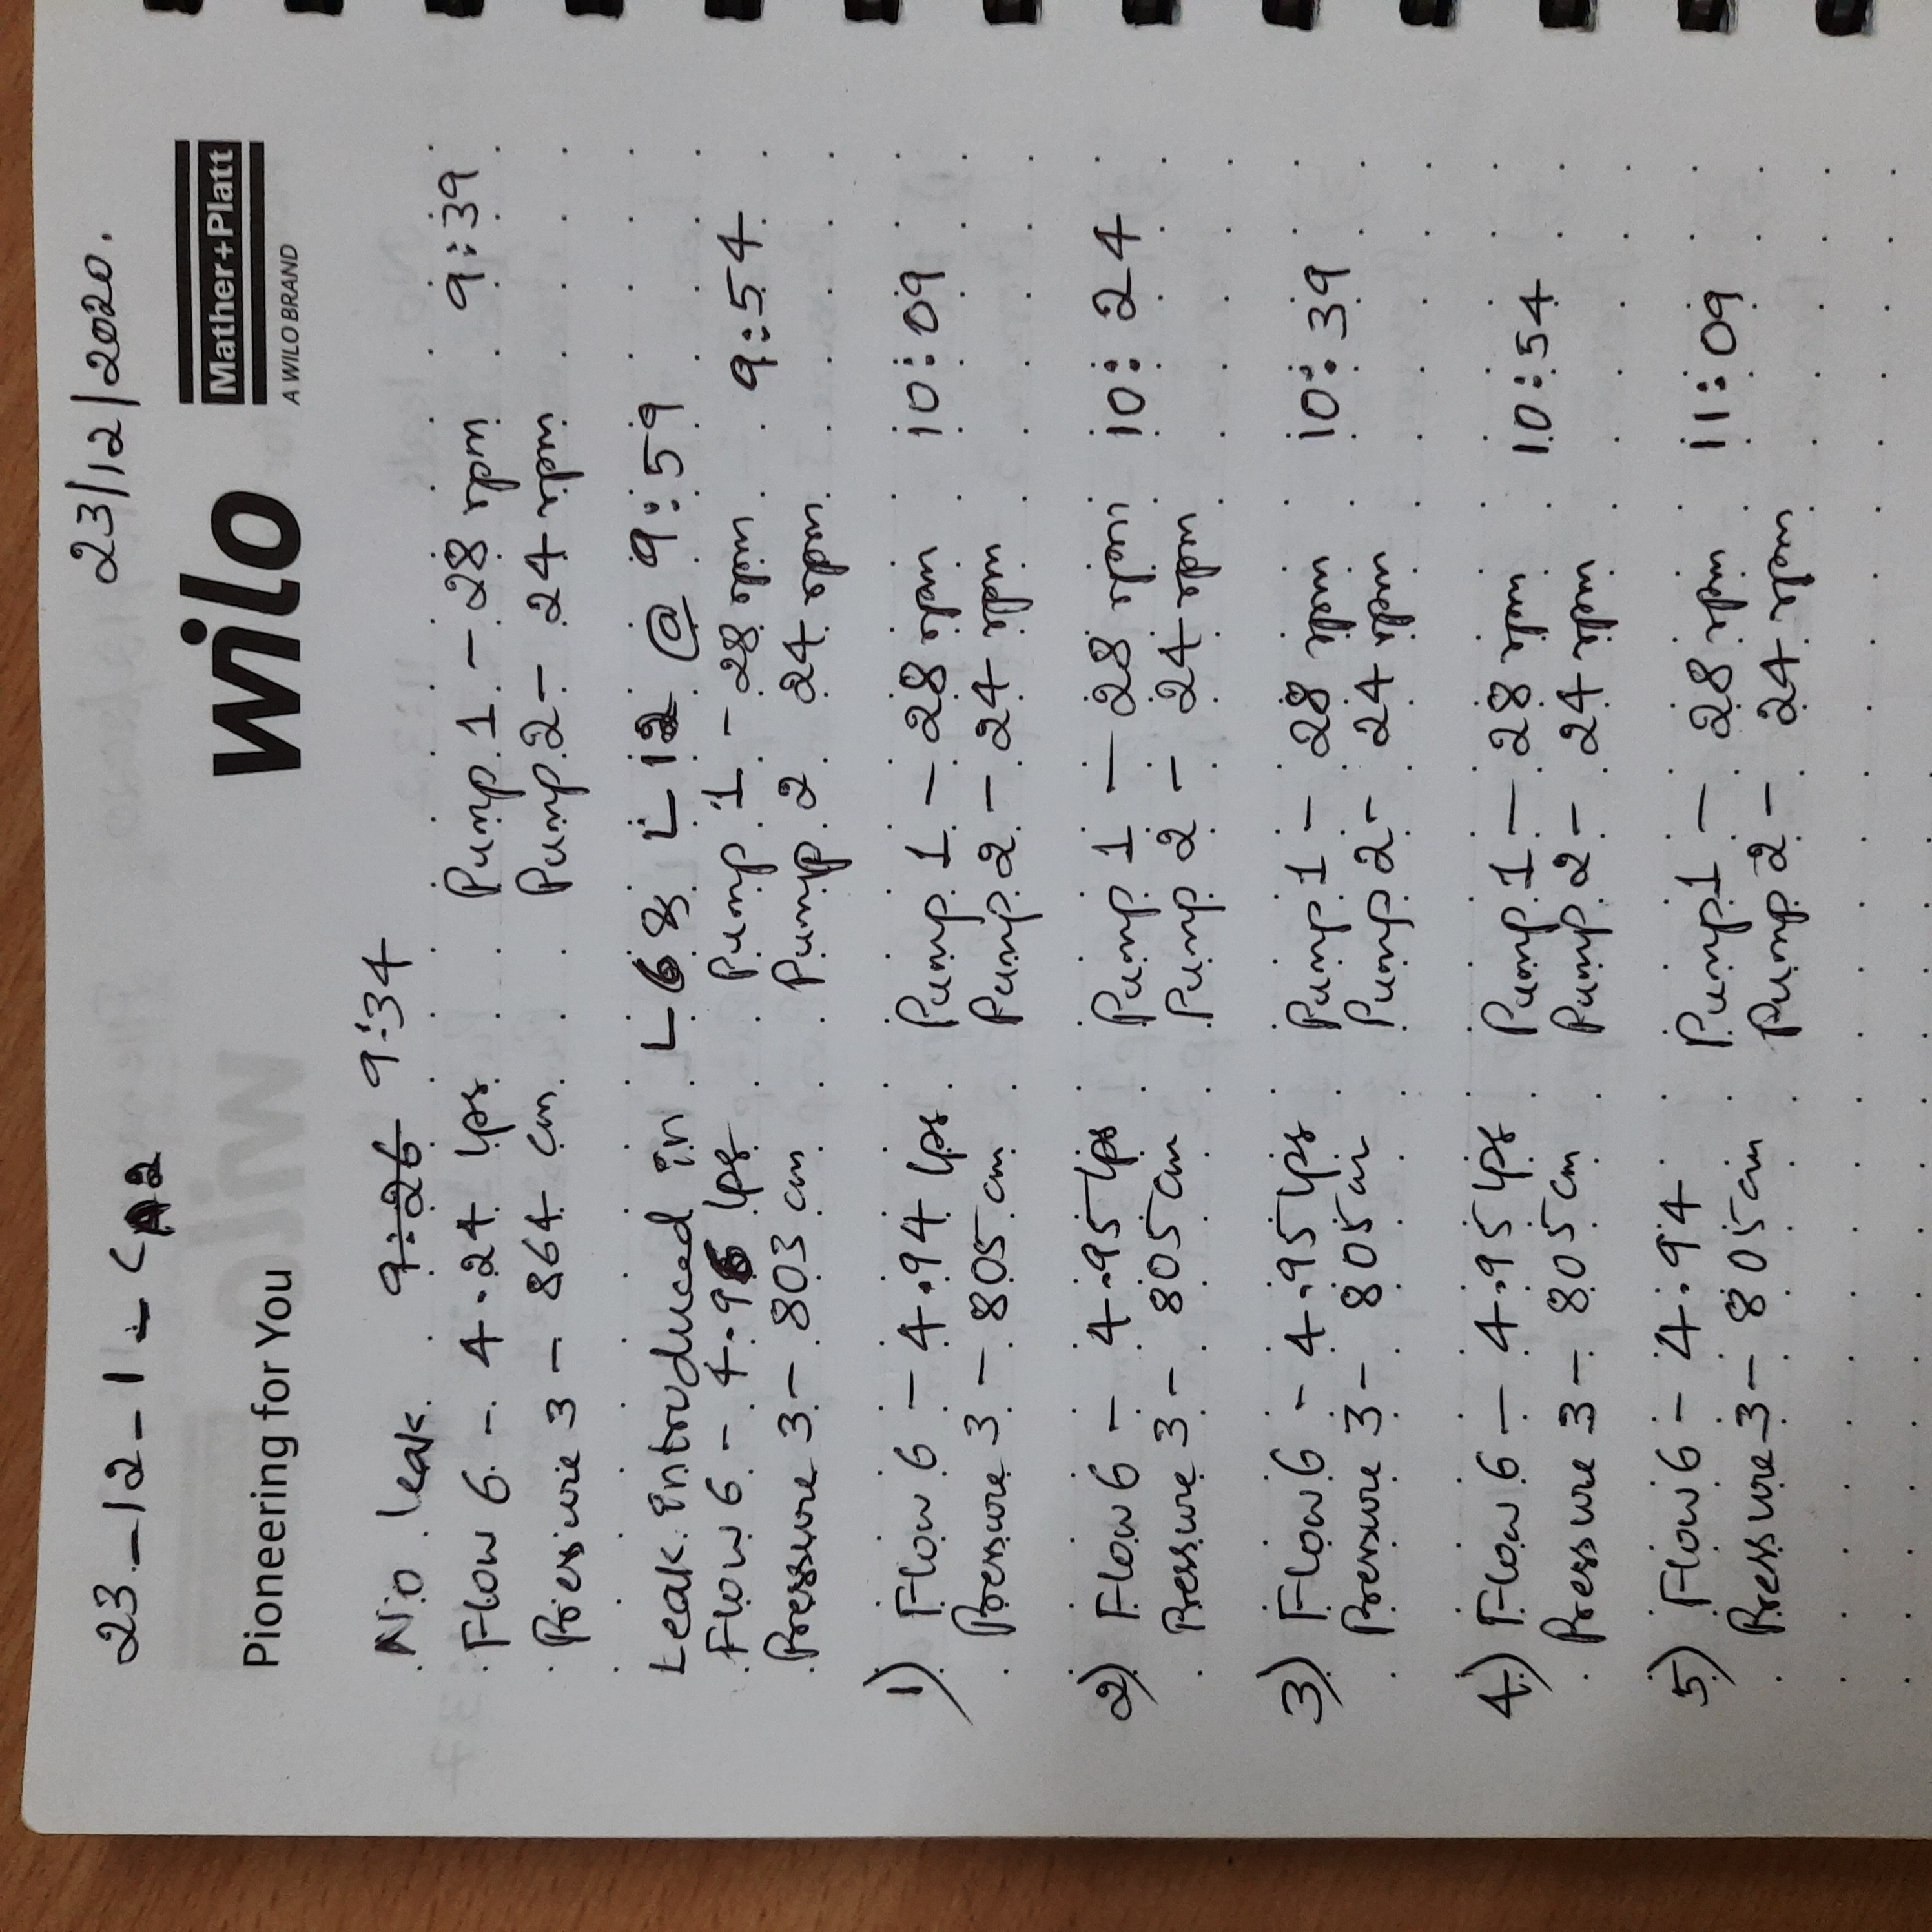 23-12-1-CA2 23/12/2020.
Pioneering for You wilo Mather+Platt
A WILO BRAND
No leak 9:26 9:34
Flow 6 - 4.24 lps Pump 1 - 28 rpm 9:39
Pressure 3 - 864 cm Pump 2 - 24 rpm
Leak introduced in L6 & L12 @ 9:59
Flow 6 - 4.96 lps Pump 1 - 28 rpm 9:54
Pressure 3 - 803 cm Pump 2 24 rpm
1) Flow 6 - 4.94 lps Pump 1 - 28 rpm 10:09
Pressure 3 - 805 cm Pump 2 - 24 rpm
2) Flow 6 - 4.95 lps Pump 1 - 28 rpm 10:24
Pressure 3 - 805 cm Pump 2 - 24 rpm
3) Flow 6 - 4.95 lps Pump 1 - 28 rpm 10:39
Pressure 3 - 805 cm Pump 2 - 24 rpm
4) Flow 6 - 4.95 lps Pump 1 - 28 rpm 10:54
Pressure 3 - 805 cm Pump 2 - 24 rpm
5) Flow 6 - 4.94 Pump 1 - 28 rpm 11:09
Pressure 3 - 805 cm Pump 2 - 24 rpm